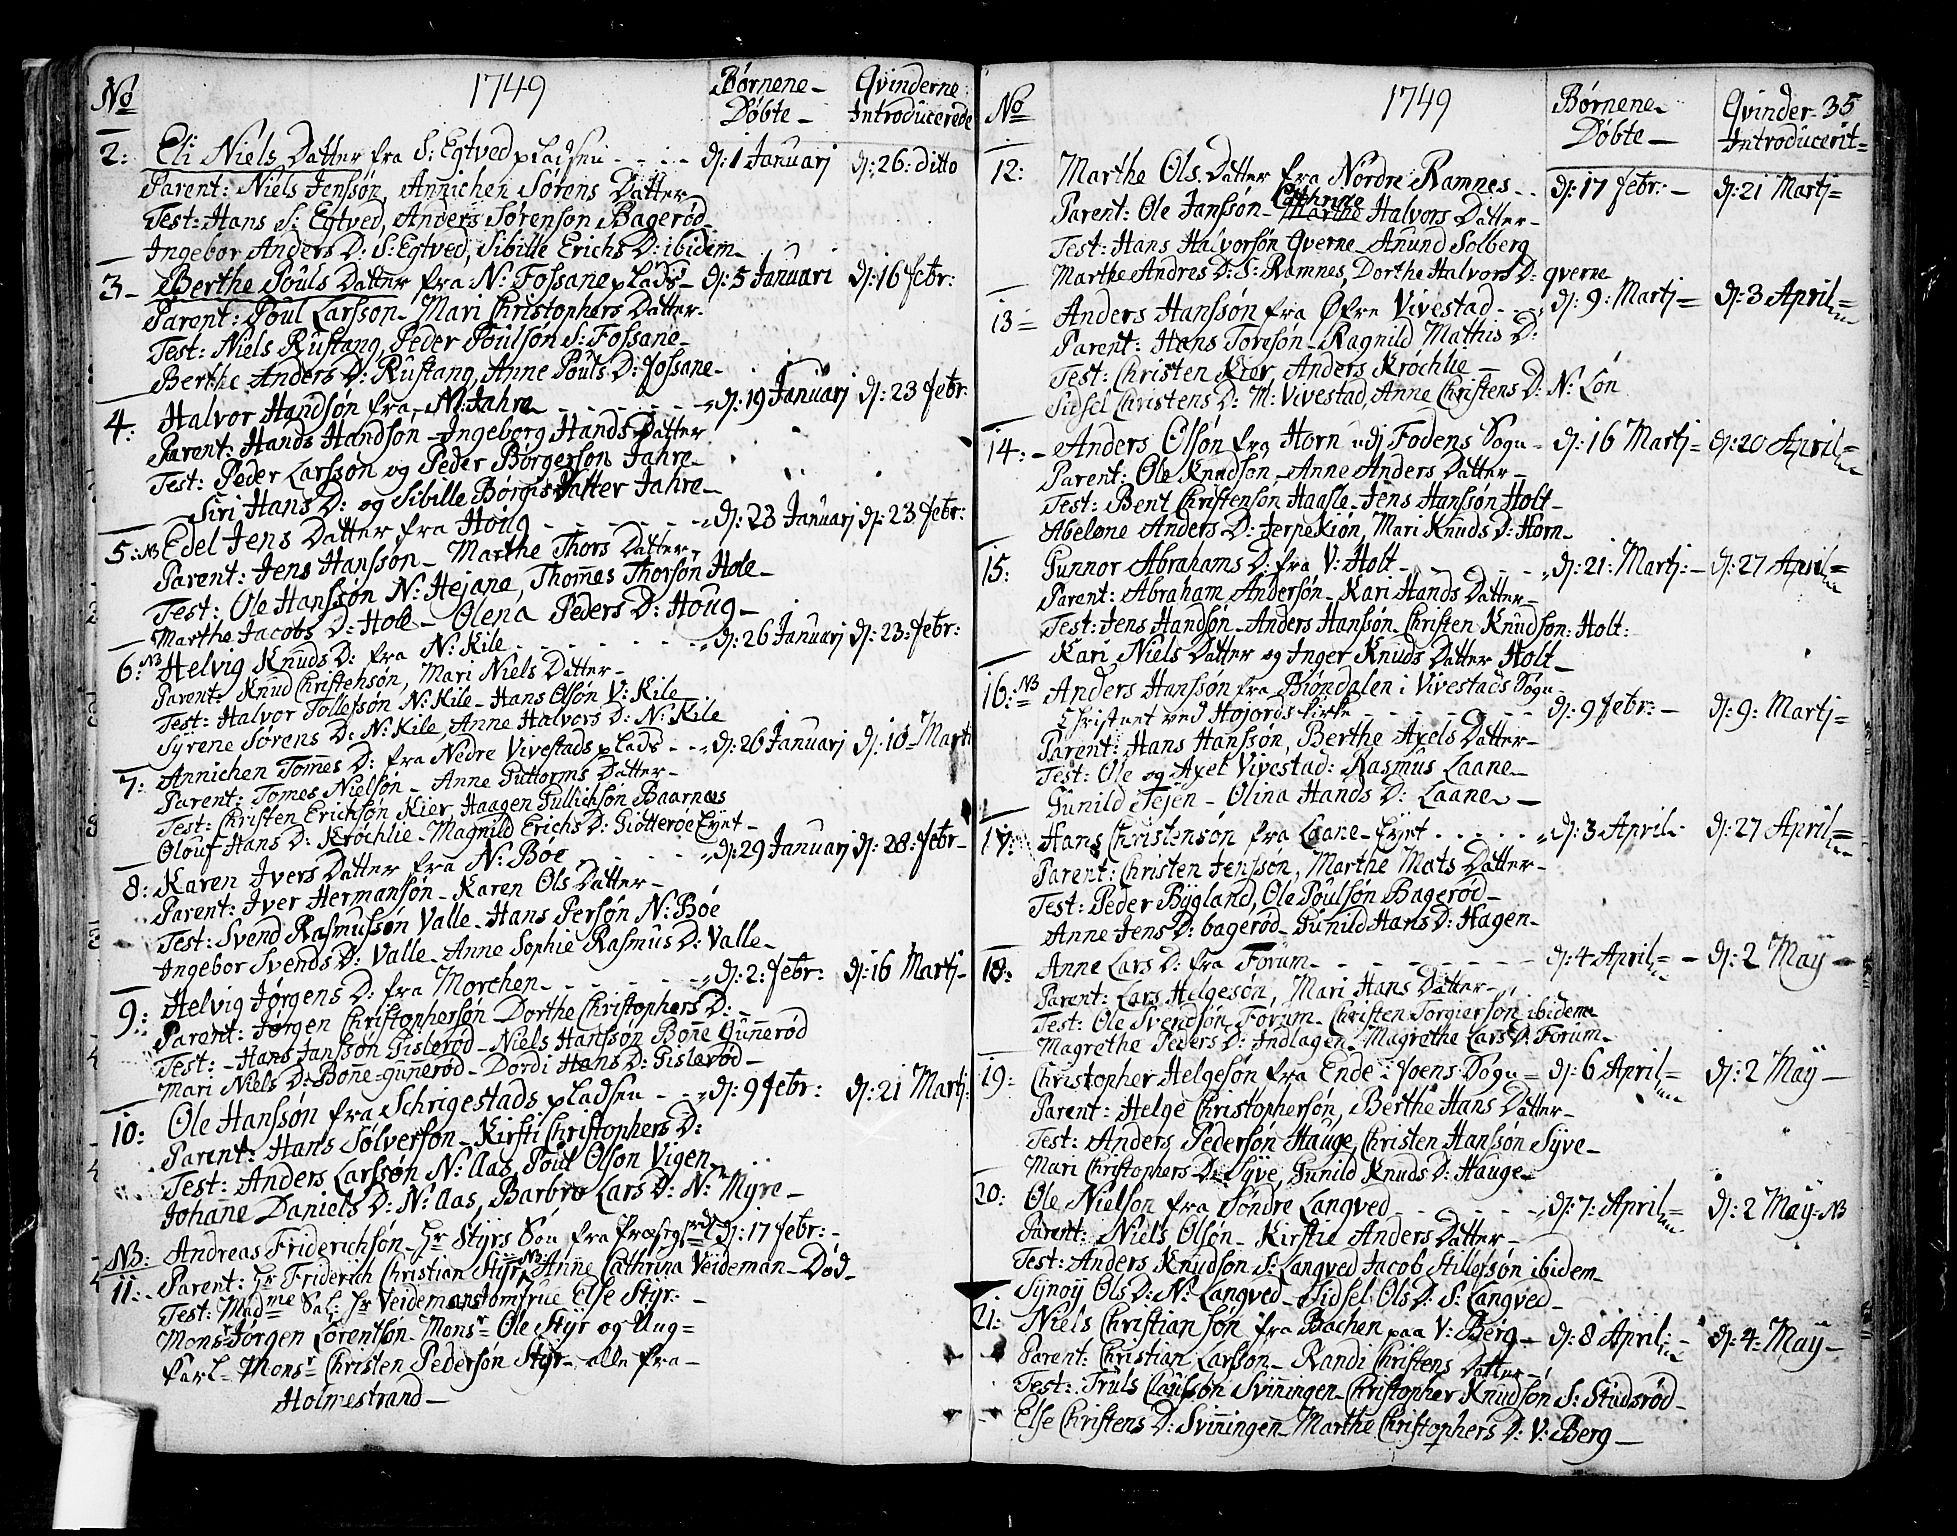 No 1749 Børnene Døbte Qvinderne Introducerede
2: Eli Niels Datter fra S: Egtved pladsen - - - dj: 1 Januarj dj: 26: ditto
Parent: Niels Jenssøn, Annichen Sørens Datter
Test: Hans S: Egtved, Anders Sørenson Bagerød
Ingebor Anders D: S: Egtved, Sibille Erichs D: ibidem
3 Berthe Pouls Datter fra N: Fossane plads dj: 5 Januari dj: 16 febr:
Parent: Poul Larsson Mari Christophers Datter
Test: Niels Rustang, Peder Poulson S: Fossane
Berthe Anders D: Rustang, Anne Pouls D: Fossane
4: Halvor Handsøn fra N: Jahre dj: 19 Januarj dj: 23 febr:
Parent: Hands Handsøn Ingeborg Hands Datter
Test: Peder Larssøn og Peder Børgersøn Jahre
Siri Hans D: og Sibille Børgis Datter Jahre
5: NB Edel Jens Datter fra Høug dj: 23 Januarj dj: 23 febr:
Parent: Jens Hansson Marthe Thors Datter
Test: Ole Hanssøn N: Hejane, Thomes Thorsøn Hole
Marthe Jacobs D: Hole Olena Peders D: Houg
6: NB Helvig Knuds D: fra N: Kile dj: 26 Januarj dj: 23: febr:
Parent: Knud Christensøn, Mari Niels Datter
Test: Halvor Tollefssøn N: Kile Hans Olsøn V: Kile
Syrene Sørens D: N: Kile, Anne Halvors D: N: Kile
7: Annichen Tomes D: fra Nedre Vivestads plads dj: 26 Januarj dj: 18 Marti
Parent: Tomes Nielsøn Anne Guttorms Datter
Test: Christen Erichsøn Kier Haagen Gullichsøn Baarnæs
Olouf Hans D: Krøchlie Magnild Erichs D: Giøtterøe Eynt
8: Karen Jvers Datter fra N: Bøe dj: 29 Januarj dj: 28: febr
Parent: Jver Hermansøn Karen Ols Datter
Test: Svend Rasmussøn Valle Hans Persøn N: Bøe
Ingebor Svends D: Valle Anne Sophie Rasmus D: Valle
9: Helvig Jørgens D: fra Morchen dj: 2: febr: dj: 16 Martj
Parent: Jørgen Christophersøn Dorthe Christophers D:
Test: Hans Janssøn Gislerød Niels Hanssøn Bonne Gunnerød
Mari Niels D: Bonne=gunnerød Dordi Hans D: Gislerød
10: Ole Hanssøn fra Schrigestads pladsen dj: 9 febr: dj: 21 Martj:
Parent: Hans Sølverson Kirsti Christophers D:
Test: Anders Larssøn N: Aas, Poul Olson Vigen
Johanne Daniels D: N: Aas, Barbro Lars D: N: Myre
NB: 11: Andreas Friderichsøn Hr Styrs Søn fra dj: 17 febr:
Parent: Hr Friderich Christian Styr NB Anne Cathrina Veideman Død
Test: Madme Sal: Hr Veidemans Jomfrue Else Styr:
Monsr Jørgen Lorentsøn Monsr Ole Styr og Ung=
Karl Monsr Christen Pedersøn Styr, alle fra
Holmestrand
No 1749 Børnene Døbte Qvinder 35 Introducerit
12: Marthe Ols Datter fra Nordre Ramnes dj: 17 febr: dj: 21 Martj
Parent: Ole Janssøn Marthe Cathrine Halvors Datter
Test: Hans Halvorsøn Qverne Anund Solberg
Marthe Andres D: S: Ramnes, Dorthe Halvors D: qverne
13 Anders Hanssøn fra Øfre Vivestad dj: 9: Martj dj: 3 April
Parent: Hans Toresøn Ragnild Mathis D:
Test: Christen Kier Anders Krøchlie
Sidsel Christens D: M: Vivestad, Anne Christens D: N: Løn
14: Anders Olsøn fra Horn udj Fodens Sogn dj: 16 Martj dj: 20 April
Parent: Ole Knudson Anne Anders Datter
Test: Bent Christensøn Haasle Jens Hansson Holt
Abeløne Anders D: Jerpekiøn, Mari Knuds D: Horn
15: Gunnor Abrahams D: fra V: Holt dj: 21: Martj: dj: 27 April
Parent: Abraham Andersøn Kari Hands Datter
Test: Jens Handsøn Anders Hanssøn Christen Knudson: Holt:
Kari Niels Datter og Inger Knuds Datter Holt
16: NB Anders Hanssøn fra Biøndalen i Vivestads Sogn
Christnet ved Hojords kirke dj: 9 febr: dj: 9: Martj
Parent: Hans Hanssøn, Berthe Axels Datter
Test: Ole og Axel Vivestad: Rasmus Laane
Gunild Tejen Olina Hands D: Laane
17: Hans Christensøn fra Laane Eynt dj: 3 April dj: 27 April
Parent: Christen Jensson, Marthe Mats Datter
Test: Peder Bygland, Ole Poulsøn Bagerød
Anne Jens D: bagerød Gunild Hans D: Hagen
18: Anne Lars D: fra Forum dj: 4 April dj: 2 May
Parent: Lars Helgesøn, Mari Hans Datter
Test: Ole Svendsøn Forum Christen Torgiersøn ibidem
Magrethe Peders D: Jndlagen Magrethe Lars D: Forum
19: Christopher Helgesøn fra Ende i Foens Sogn dj: 6 April dj: 2 May
Parent: Helge Christophersøn, Berthe Hans Datter
Test: Anders Pedersøn Hauge, Christen Hanssøn Syve
Mari Christophers D: Syve Gunild Knuds D: Hauge
20: Ole Nielson fra Søndre Langved dj: 7: April dj: 2 May NB
Parent: Niels Olsøn Kirstie Anders Datter
Test: Anders Knudson S: Langved Jacob Stillefsøn ibidem
Synøy Ols D: N: Langved Sidsel Ols D: S: Langved
21: Niels Christiansøn fra Bachen paa V: Berg dj: 8 April: dj: 4: May
Parent: Christian Larsson Randi Christens Datter
Test: Truls Claussøn Svinningen Christopher Knudsøn S: Studsrød
Else Christens D: Svinningen Marthe Christophers D: V: Berg